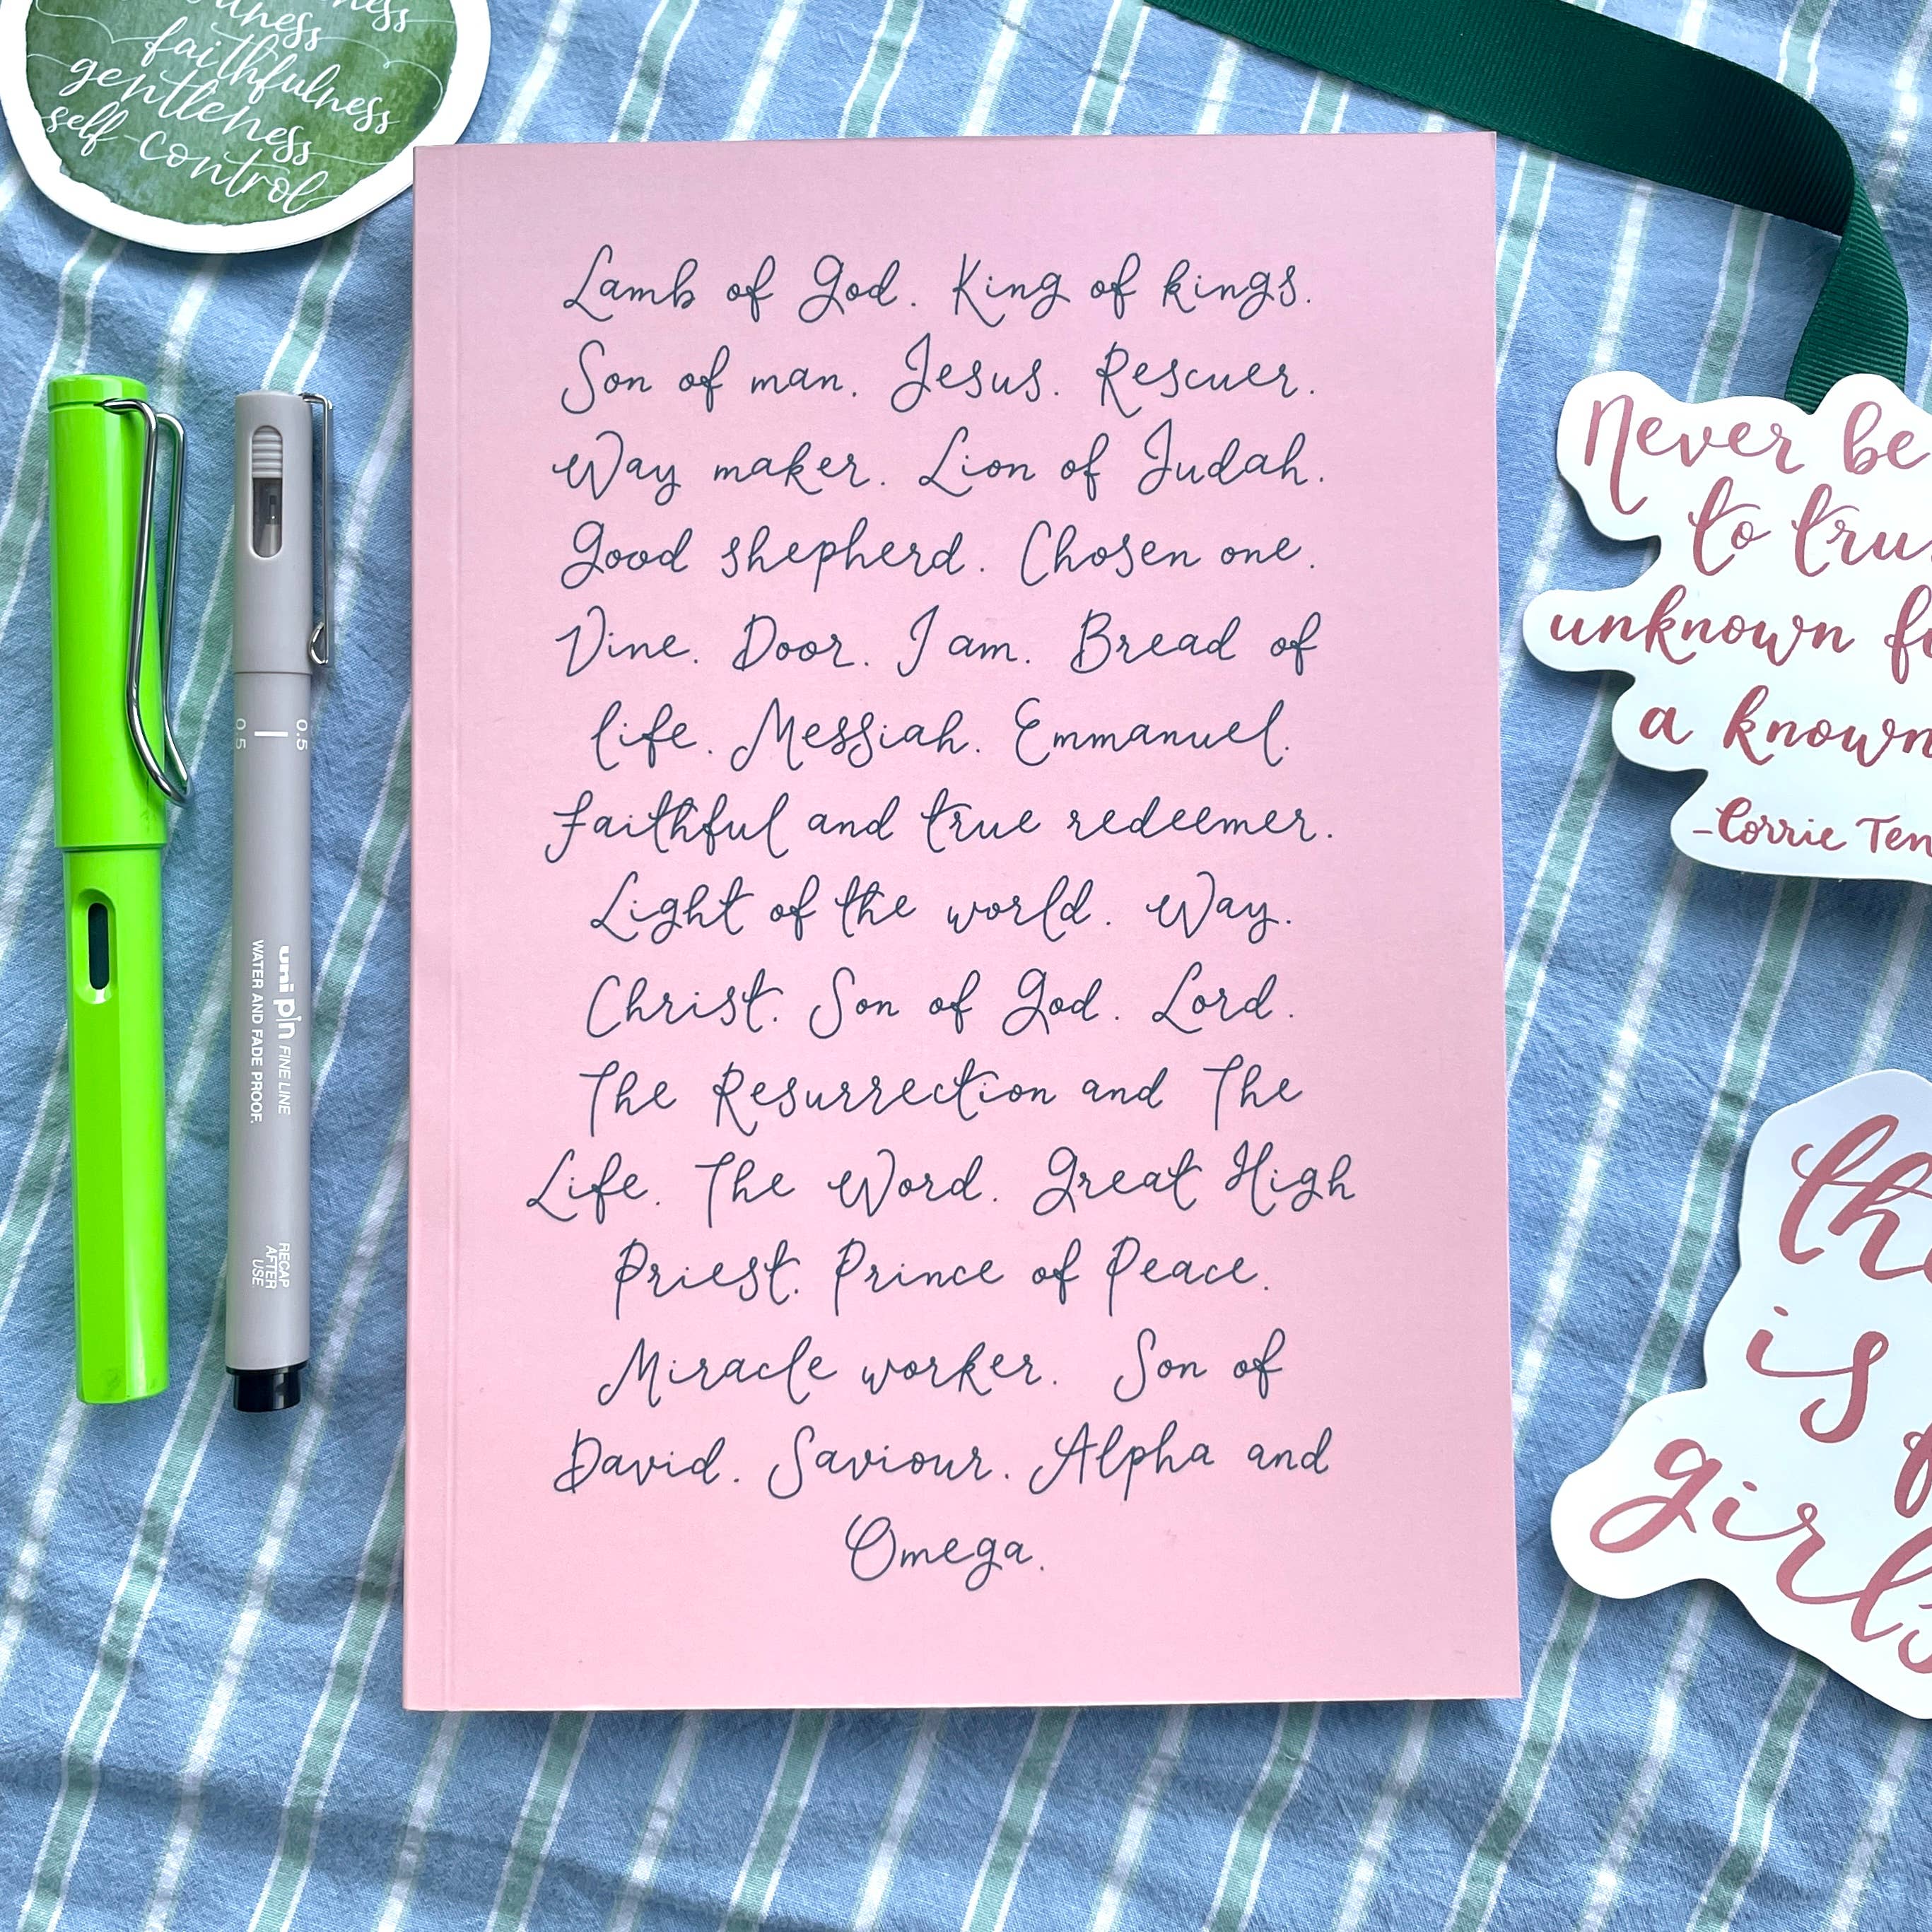 faithfulness
gentleness
self-control
Lamb of God. King of kings.
Son of man. Jesus. Rescuer.
Way maker. Lion of Judah.
Good shepherd. Chosen one.
Vine. Door. I am. Bread of
life. Messiah. Emmanuel.
Faithful and true redeemer.
Light of the world. Way.
Christ. Son of God. Lord.
The Resurrection and The
Life. The Word. Great High
Priest. Prince of Peace.
Miracle worker. Son of
David. Saviour. Alpha and
Omega.
0.5
0.5
uni pin FINE LINE
WATER AND FADE PROOF.
RECAP
AFTER
USE
Never be
to
unknown
a known
-Corrie Ten
is
girls